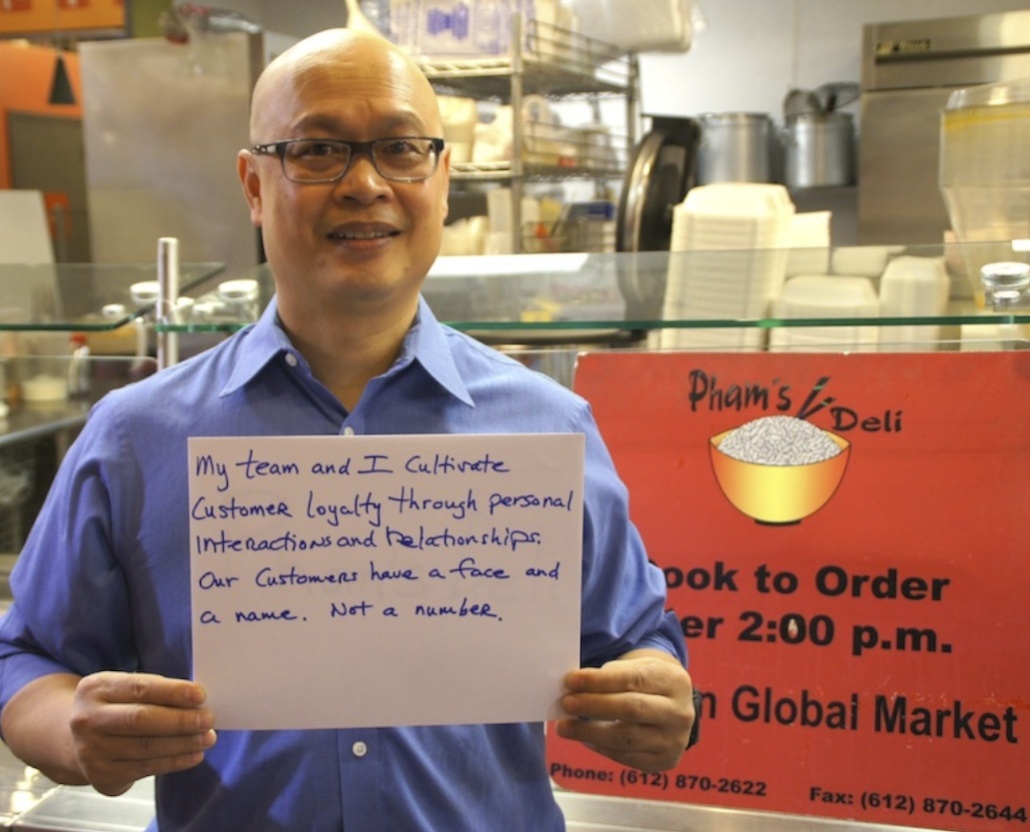 My team and I Cultivate
Customer loyalty through personal
Interactions and Relationships.
Our Customers have a face and
a name. Not a number.
Pham's
Deli
ook to Order
er 2:00 p.m.
n Global Market
Phone: (612) 870-2622 Fax: (612) 870-2644